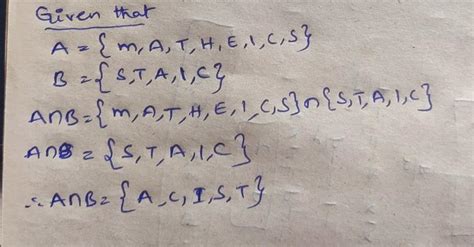 Given that
A = {m, A, T, H, E, I, C, S}
B = {S, T, A, I, C}
A∩B = {m, A, T, H, E, I, C, S} ∩ {S, T, A, I, C}
A∩B = {S, T, A, I, C}
∴ A∩B = {A, C, I, S, T}